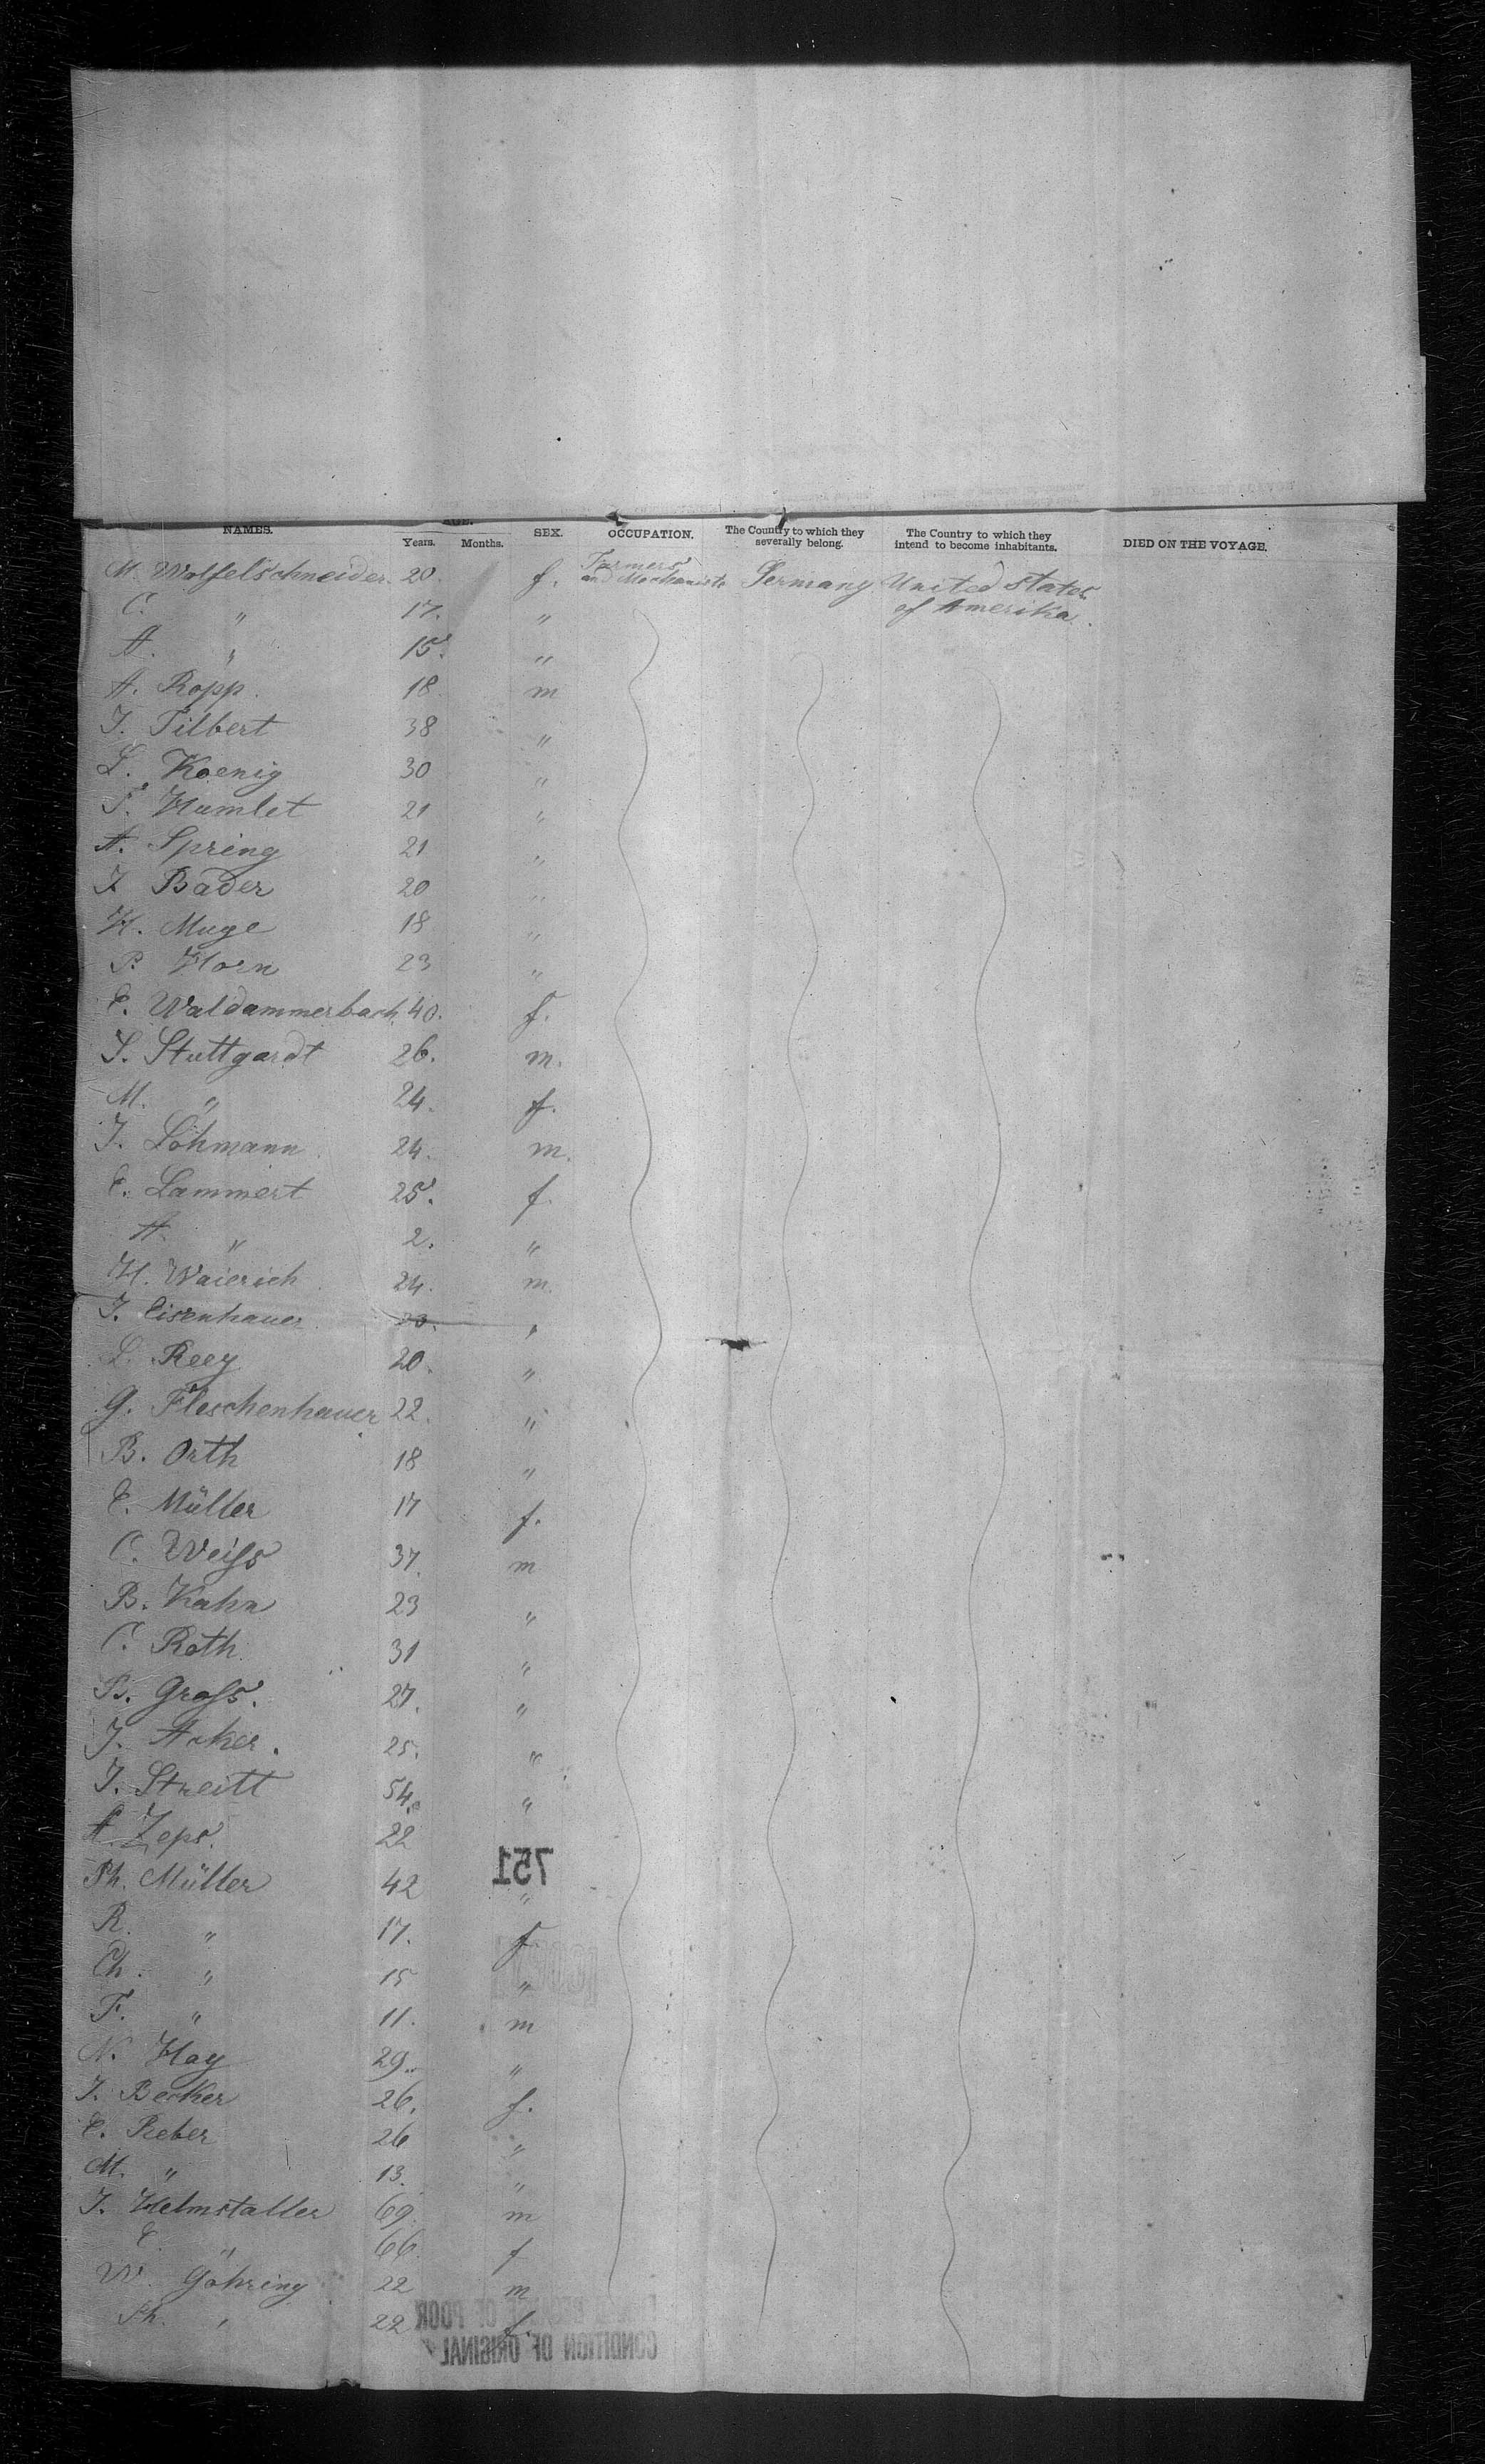 NAMES. AGE. SEX. OCCUPATION. The Country to which they severally belong. The Country to which they intend to become inhabitants. DIED ON THE VOYAGE.
Years. Months.
M. Wolfelschneider 20. f. Farmers and Mechanists Germany United States
C. " 17. " of Amerika.
A. " 15. "
A. Ropp. 18. m
J. Tilbert 38 "
L. Koenig 30 "
F. Humlet 21 "
A. Spring 21 "
J. Bader 20 "
H. Muge 18 "
P. Horn 23 "
E. Waldammerbach 40. f.
J. Stuttgardt 26. m.
M. " 24. f.
J. Löhmann 24. m.
E. Lammert 25. f.
A. " 2. "
H. Waierich 24. m.
J. Eisenhauer 20. "
L. Reey 20. "
G. Fleschenhauer 22. "
B. Orth 18 "
E. Müller 17 f.
C. Weiss 37. m
B. Kahn 23 "
C. Roth. 31 "
B. Gross. 27. "
J. Acker. 25. "
J. Streitt 54. "
A. Zeps. 22
751
Ph. Müller 42 "
R. " 17. f
Ch. " 15 "
F. " 11. m
N. Hay 29. "
J. Becker 26. f.
E. Reber 26 "
M. " 13. "
J. Helmstaller 69. m
E. " 66. f
W. Göhring 22 m
Ph. " 22 f.
OF POOR
CONDITION OF ORIGINAL